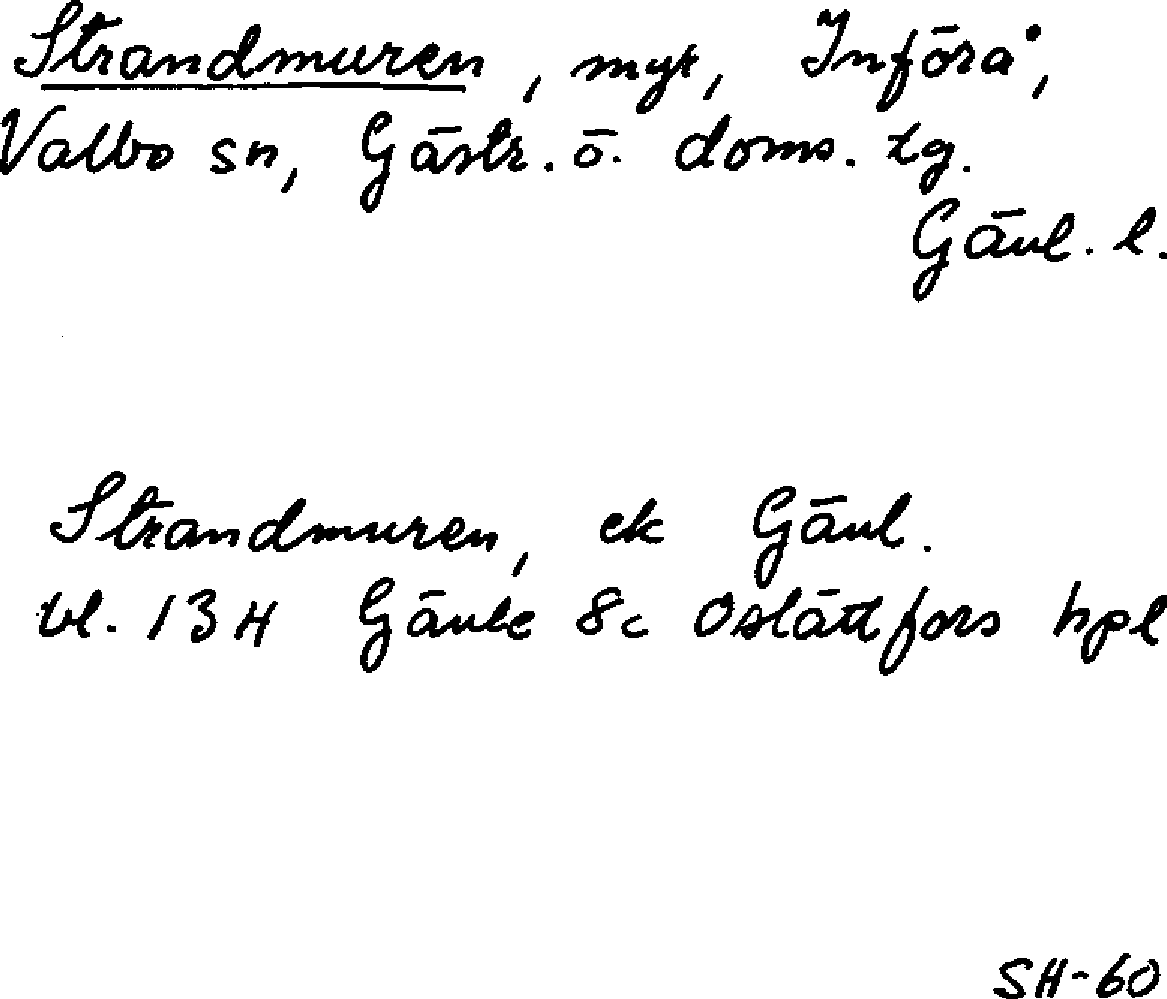 Strandmuren, myr, Införå,
Valbo sn, Gästr. ö. doms. tg.
Gävl. l.
Strandmuren, ek Gävl.
bl. 13H Gävle 8c Oslättfors hpl
SH-60